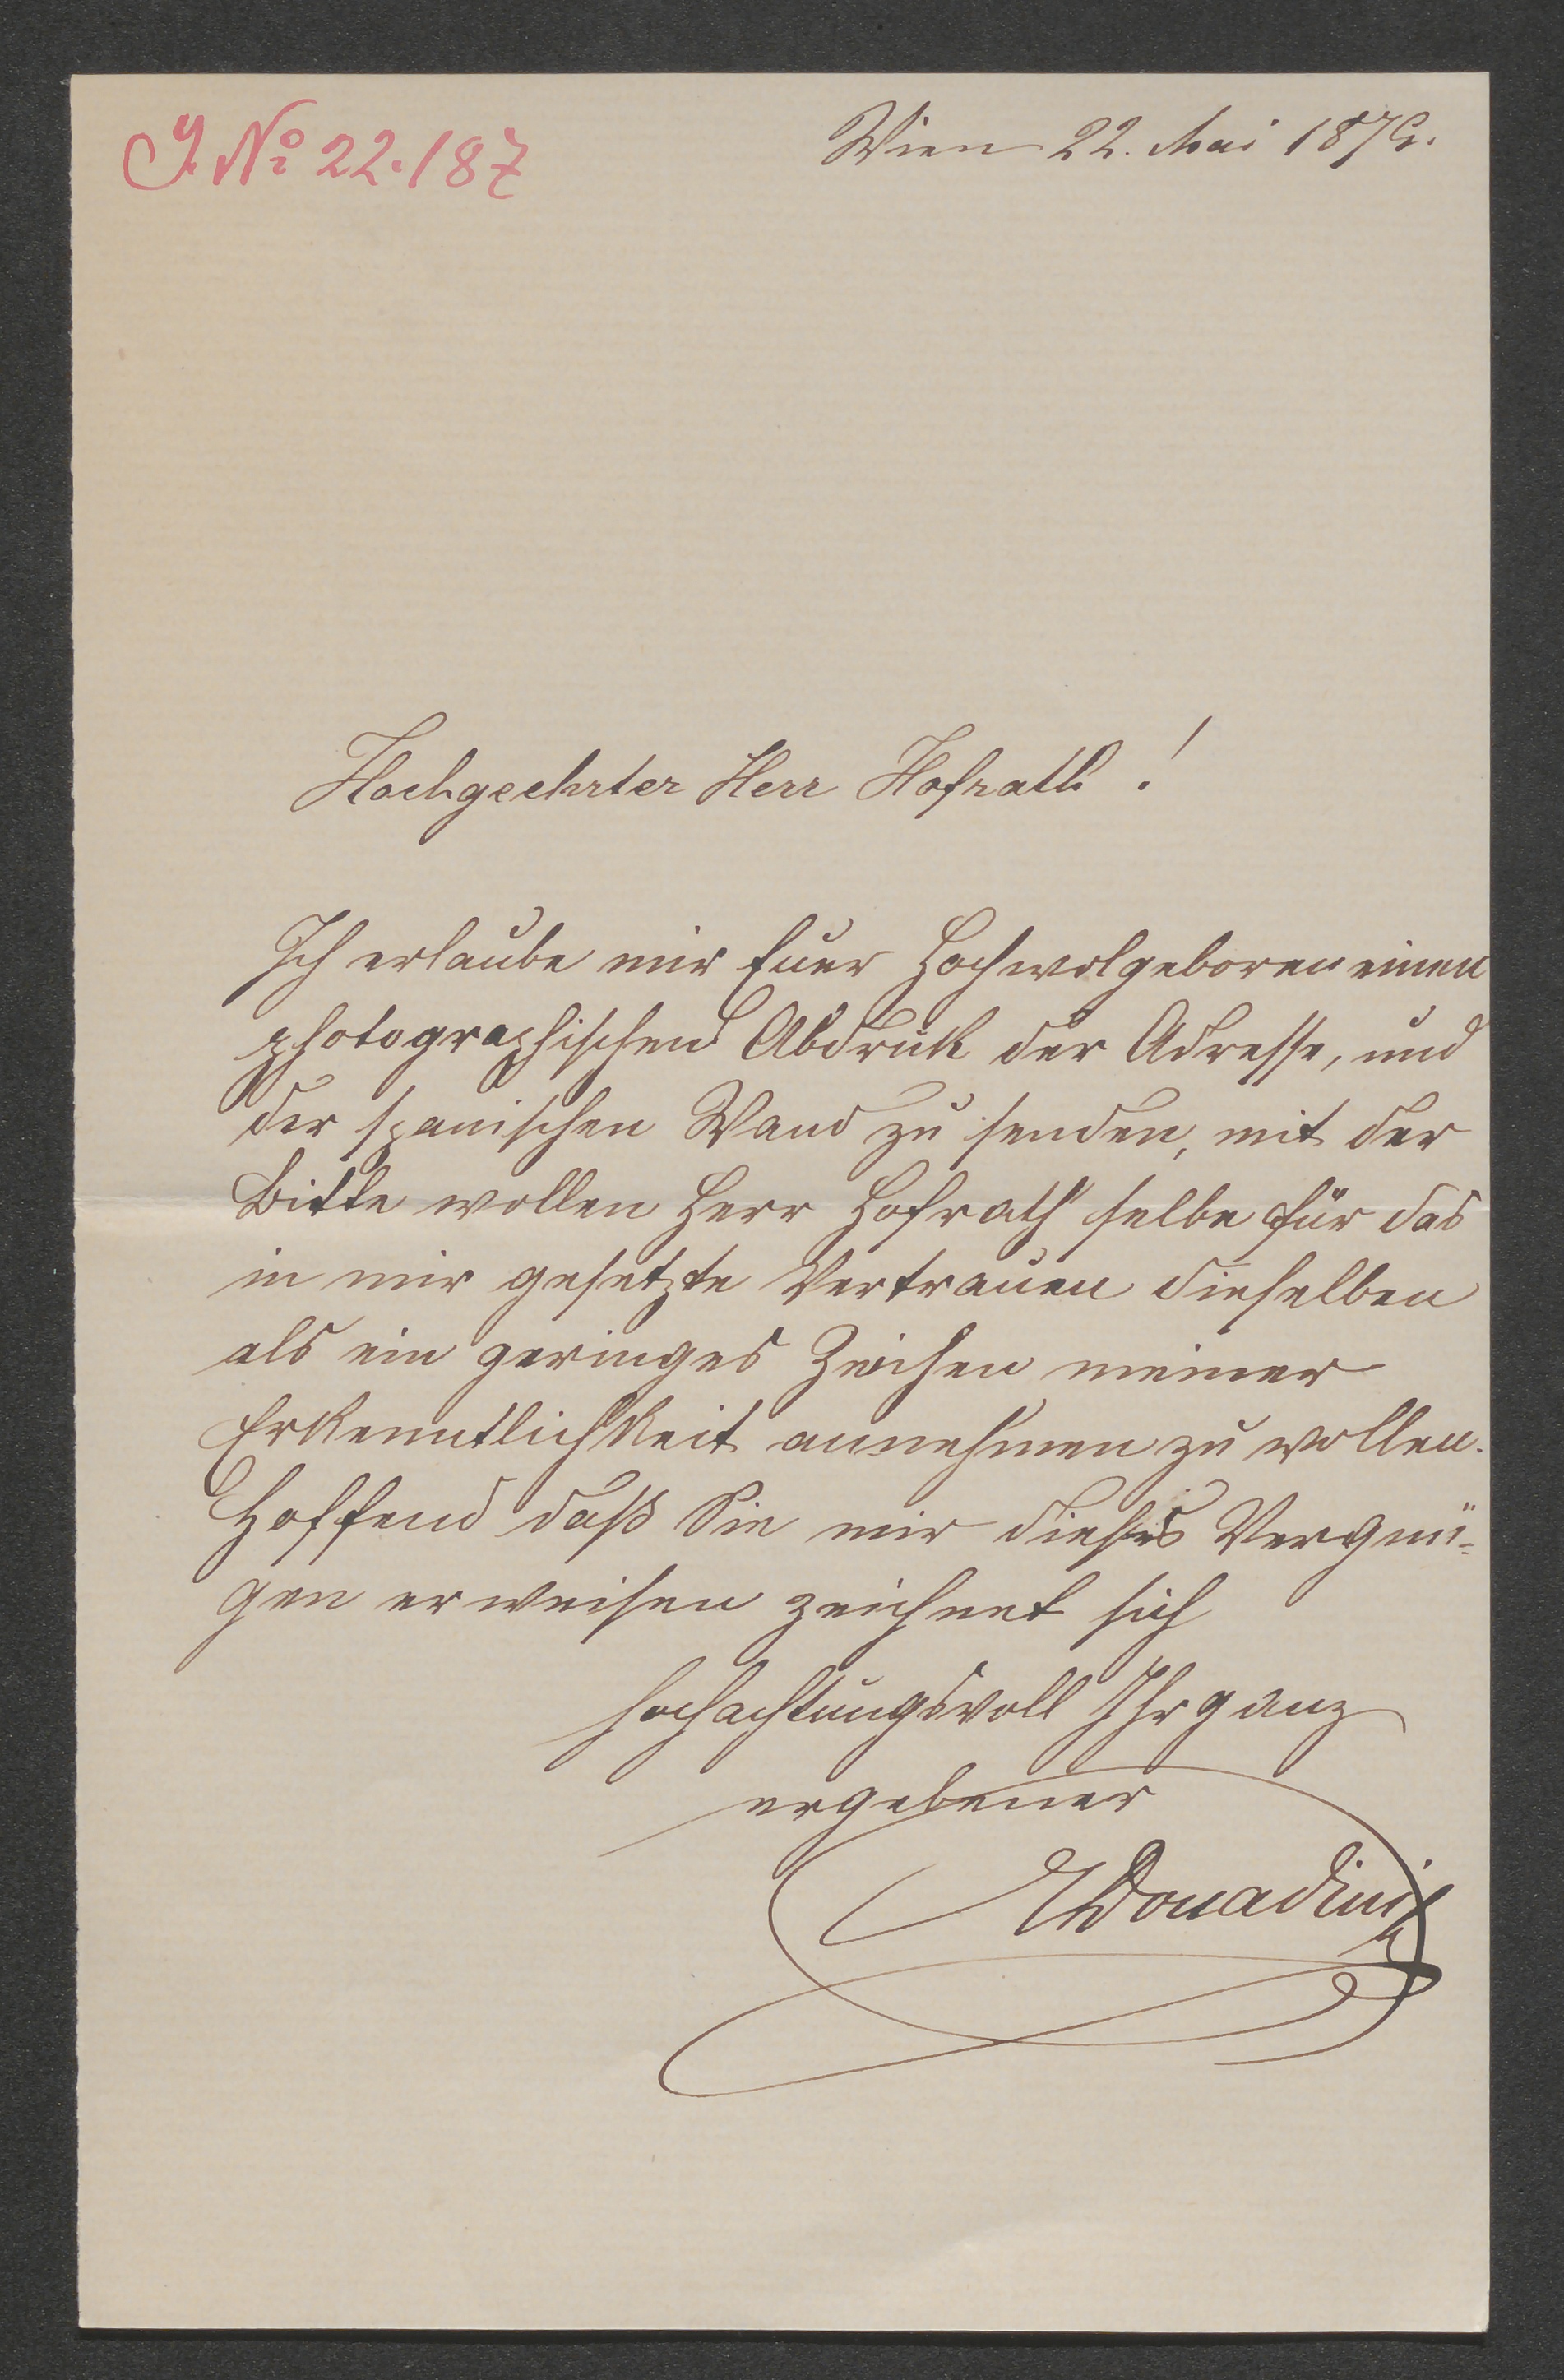 I. No 22.187
Wien 22. Mai 1879.
Hochgeehrter Herr Hofrath!
Ich erlaube mir Euer Hochwolgeboren einen
photographischen Abdruck der Adresse, und
der spanischen Wand zu senden, mit der
Bitte wollen Herr Hofrath selbe für das
in mir gesetzte Vertrauen dieselben
als ein geringes Zeichen meiner
Erkenntlichkeit annehmen zu wollen.
Hoffend daß Sie mir dieses Vergnü-
gen erweisen zeichnet sich
hochachtungsvoll Ihr ganz
ergebener
Donadini